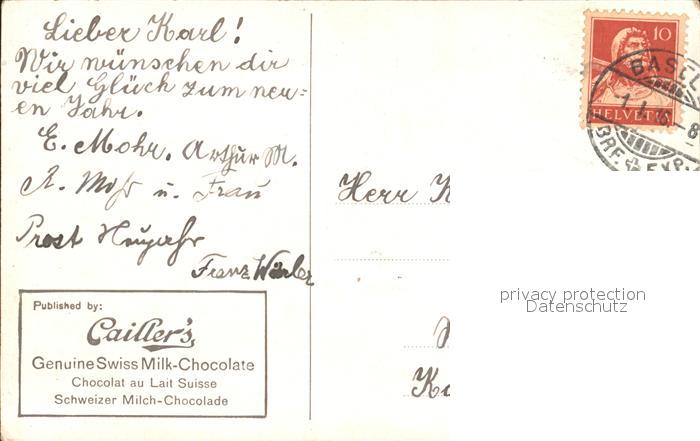 Lieber Karl!
Wir wünschen dir
viel Glück zum neu=
en Jahr.
E. Mohr. Arthur M.
R. Mohr u. Frau
Prost Neujahr
Franz
Published by:
Cailler's
Genuine Swiss Milk-Chocolate
Chocolat au Lait Suisse
Schweizer Milch-Chocolade
10
HELVETIA
BASEL
BRF. EXP.
Herr K
privacy protection
Datenschutz